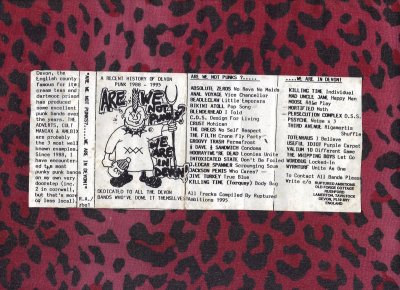 Devon, the
English county
famous for it's
cream teas and
dartmoor prison
has produced
some excellent
punk bands over
the years. THE
ADVERTS, CULT
MANIAX & AMEBIX
are probably
the 3 most well
known examples.
Since 1988, I
have encounter-
punky punk bands
on my own very
doorstep (inc.
2 in cornwall
but that's more
or less local).
"ARE WE NOT PUNKS?... WE ARE IN DEVON!"
A RECENT HISTORY OF DEVON
PUNK 1988 - 1995
ARE WE
NOT
PUNKS?
WE
ARE IN
DEVON!
DEDICATED TO ALL THE DEVON
BANDS WHO'VE DONE IT THEMSELVES
ARE WE NOT PUNKS ?.....
ABSOLUTE ZEROS No Revs No Maids
ANAL VOYAGE Vice Chancellor
BEADLECLAW Little Emperors
BIKINI ATOLL Pop Song
BLENDERHEAD I Told
C.D.S. Design For Living
CRUST Mohican
THE DREGS No Self Respect
THE FILTH Crane Fly Party
GROOVY TRASH Farmafrost
I, DAVE & SANDWICH Gondoma
HOORAYTHE'RE DEAD Loonies Unite
INTOXICATED STATE Don't Be Fooled
J.EDGAR SPANNER Scavenging Scum
JACKSON PENIS Who Cares?
JIVE TURKEY True Blue
KILLING TIME (Torquay) Body Bug
All Tracks Compiled By Ruptured
Ambitions 1995
....WE ARE IN DEVON!
KILLING TIME Individual
MAD UNCLE JAK Happy Men
MOOSE 80aw Play
MORTIFIED Math
PERSECUTION COMPLEX D.S.S.
PSYCHIC Weird 3
THIRD AVENUE Algemertia
Shuffle
TOTENHAUS I Believe
USEFUL IDIOT Purple Carpet
VALIUM 10 Different Game
THE WHIPPING BOYS Let Go
WORDBUG Locked-In
WYSTAN Unite As One
To Contact All Bands Please
Write c/o RUPTURED AMBITIONS
OLD FORGE COTTAGE
LAMERTON, TAVISTOCK
DEVON, PL19 8RY
ENGLAND